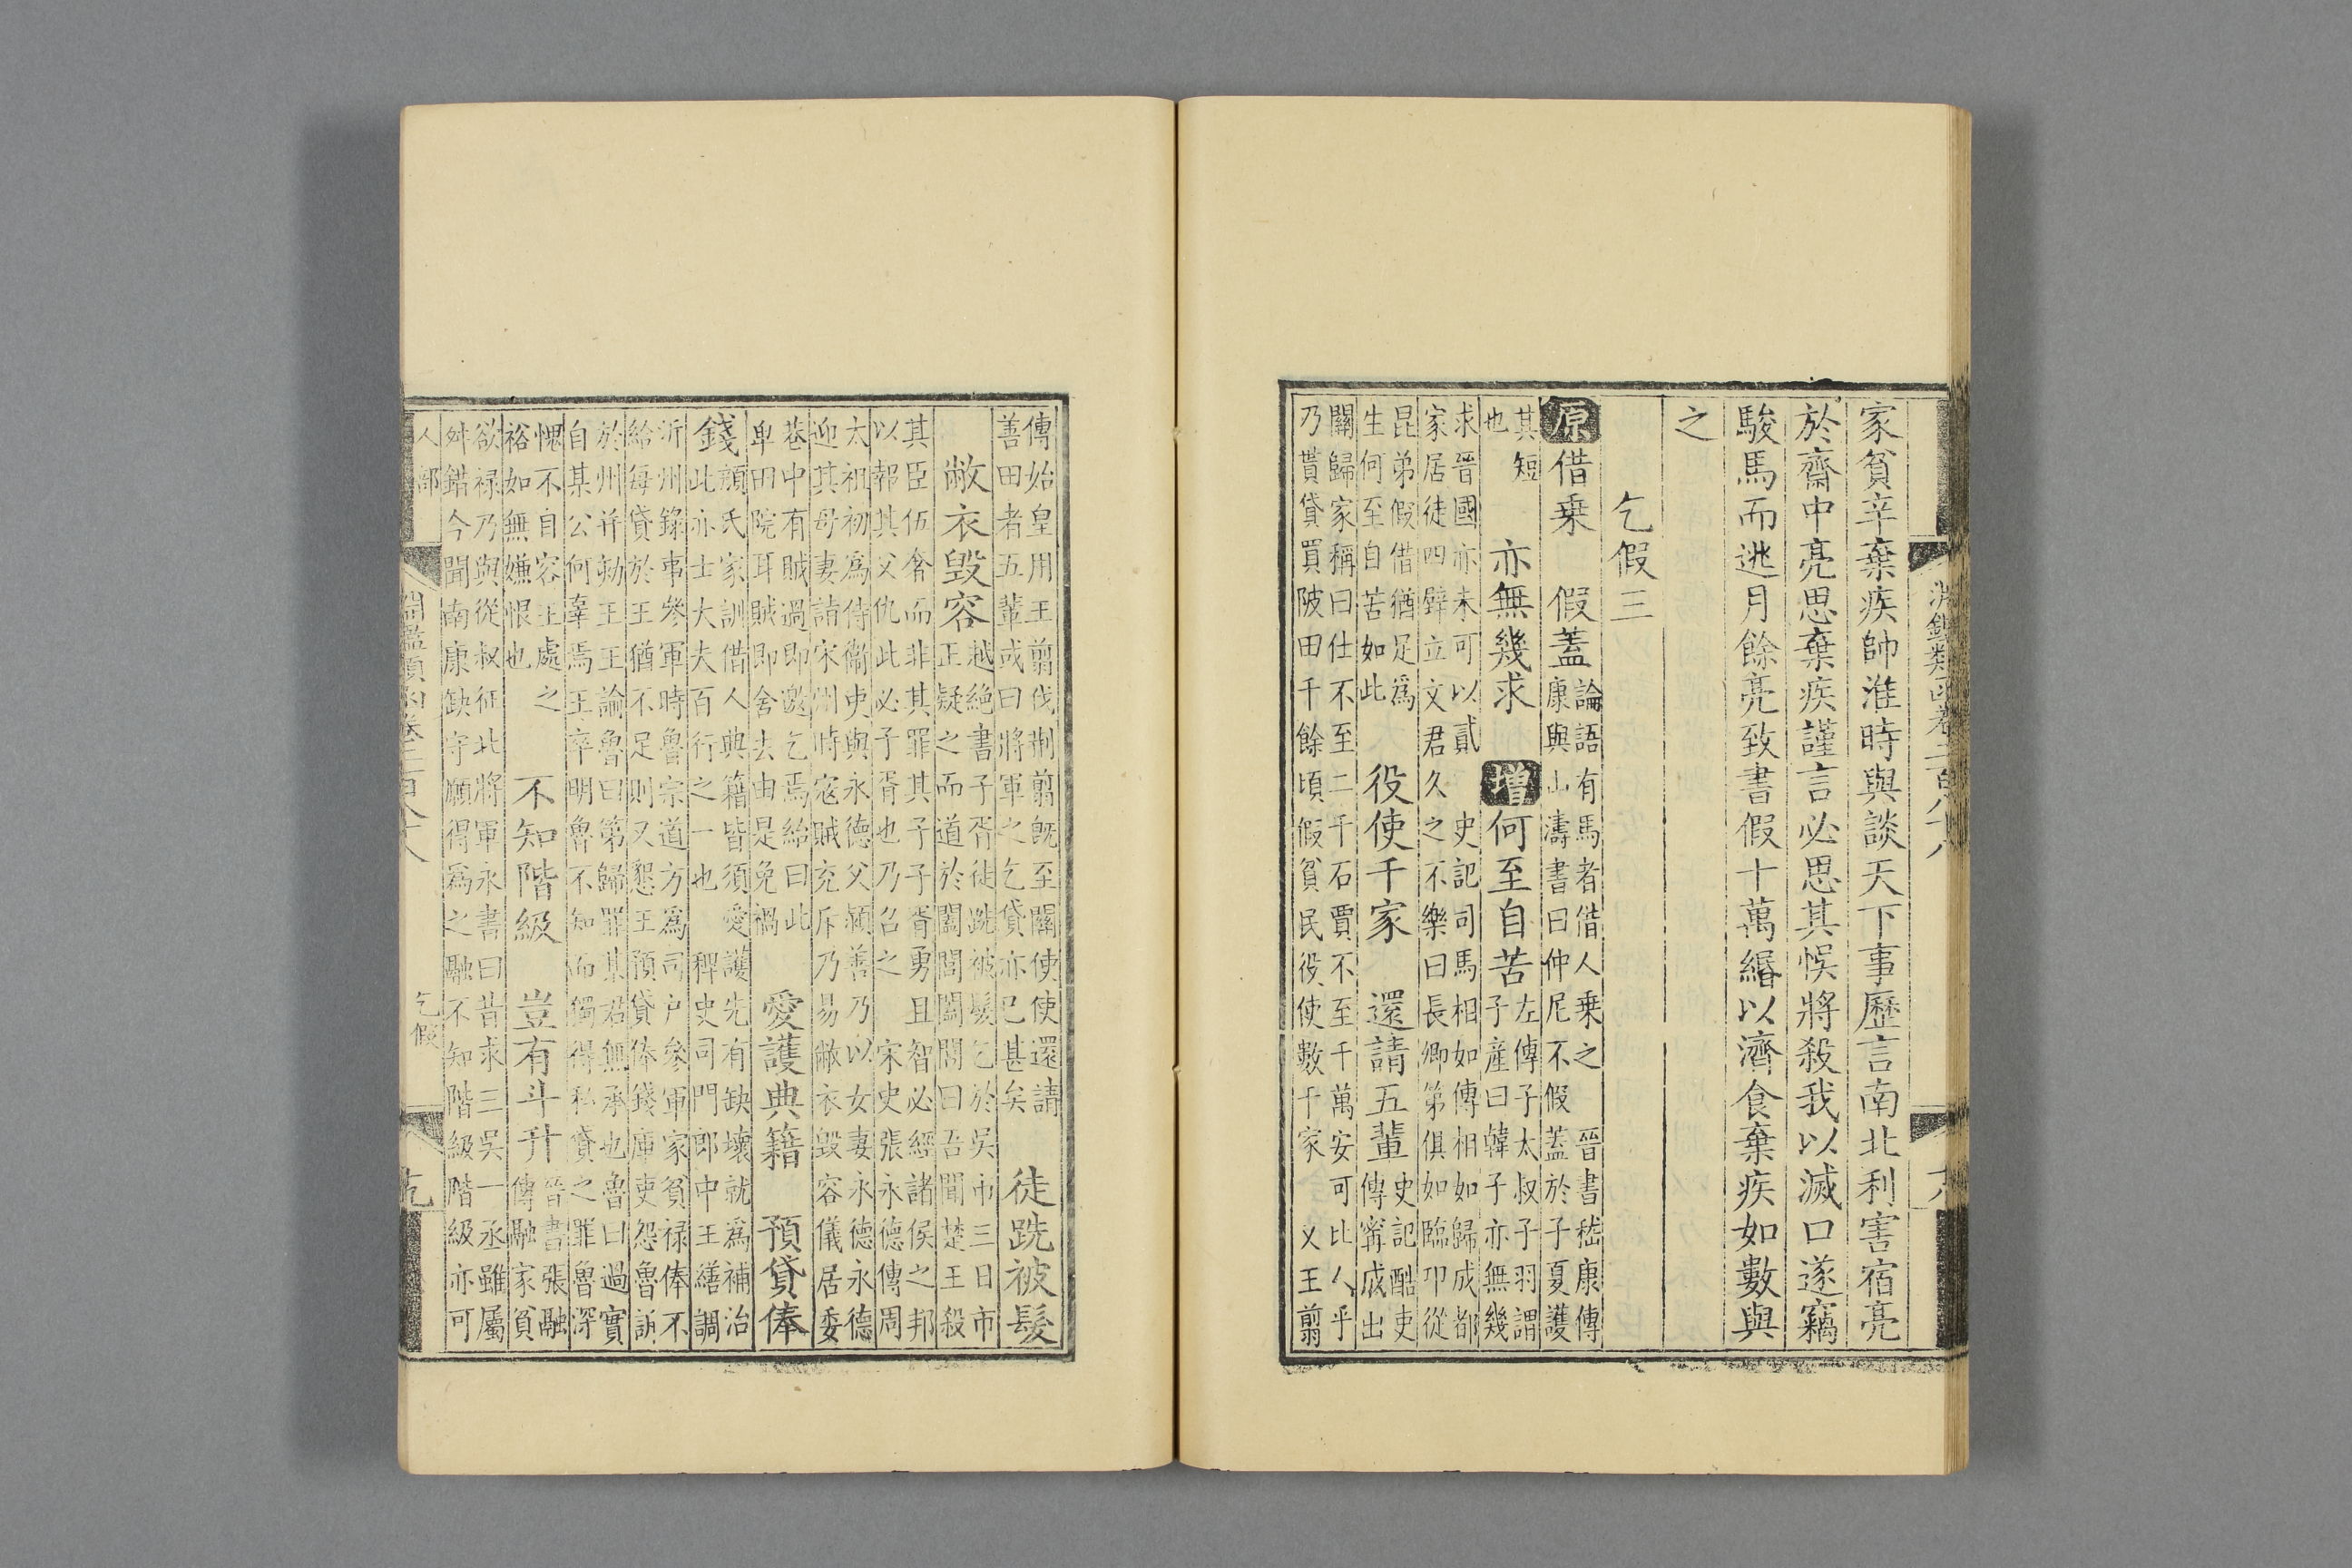 家貧辛棄疾帥淮時與談天下事歷言南北利害宿亮
於齋中亮思棄疾謹言必思其悞將殺我以滅口遂竊
駿馬而逃月餘亮致書假十萬緡以濟食棄疾如數與
之
乞假三
原借乗 假蓋
論語有馬者借人乗之 晉書嵇康傳
康與山濤書曰仲尼不假蓋於子夏護
其短
也
亦無幾求
增何至自苦
左傳子太叔子羽謂
子產曰韓子亦無幾
求晉國亦未可以貳 史記司馬相如傳相如歸成都
家居徒四壁立文君久之不樂曰長卿第俱如臨卭從
昆弟假借猶足爲
生何至自苦如此
役使千家 還請五輩
史記酷吏
傳甯成出
關歸家稱曰仕不至二千石賈不至千萬安可比人乎
乃貰貸買陂田千餘頃假貧民役使數千家 又王翦
傳始皇用王翦伐荆翦旣至關使使還請
善田者五輩或曰將軍之乞貸亦已甚矣
徒跣被髮
敝衣毁容
越絶書子胥徒跣被髮乞於吳市三日市
正疑之而道於闔閭闔閭曰吾聞楚王殺
其臣伍奢而非其罪其子子胥勇且智必經諸侯之邦
以報其父仇此必子胥也乃召之 宋史張永德傳周
太祖初爲侍衞吏與永德父頴善乃以女妻永德永德
迎其母妻詣宋州時寇賊充斥乃易敝衣毁容儀居委
巷中有賊過即邀乞焉給曰此
卑田院耳賊即舍去由是免禍
愛護典籍 預貸俸
錢
顔氏家訓借人典籍皆須愛護先有缺壊就爲補治
此亦士大夫百行之一也 稗史司門郎中王繕調
沂州錄事叅軍時魯宗道方爲司户叅軍家貧禄俸不
給每貸於王猶不足則又懇王預貸俸錢庫吏怨魯訴
於州并劾王王論魯曰第歸罪某君無承也魯曰過實
自某公何辜焉王卒明魯不知而獨得私貸之罪魯深
愧不自容王處之
裕如無嫌恨也
不知階級 豈有斗升
晉書張融
傳融家貧
欲禄乃與從叔征北將軍永書曰昔求三吳一丞雖屬
舛錯今聞南康缺守願得爲之融不知階級階級亦可
人部
乞假